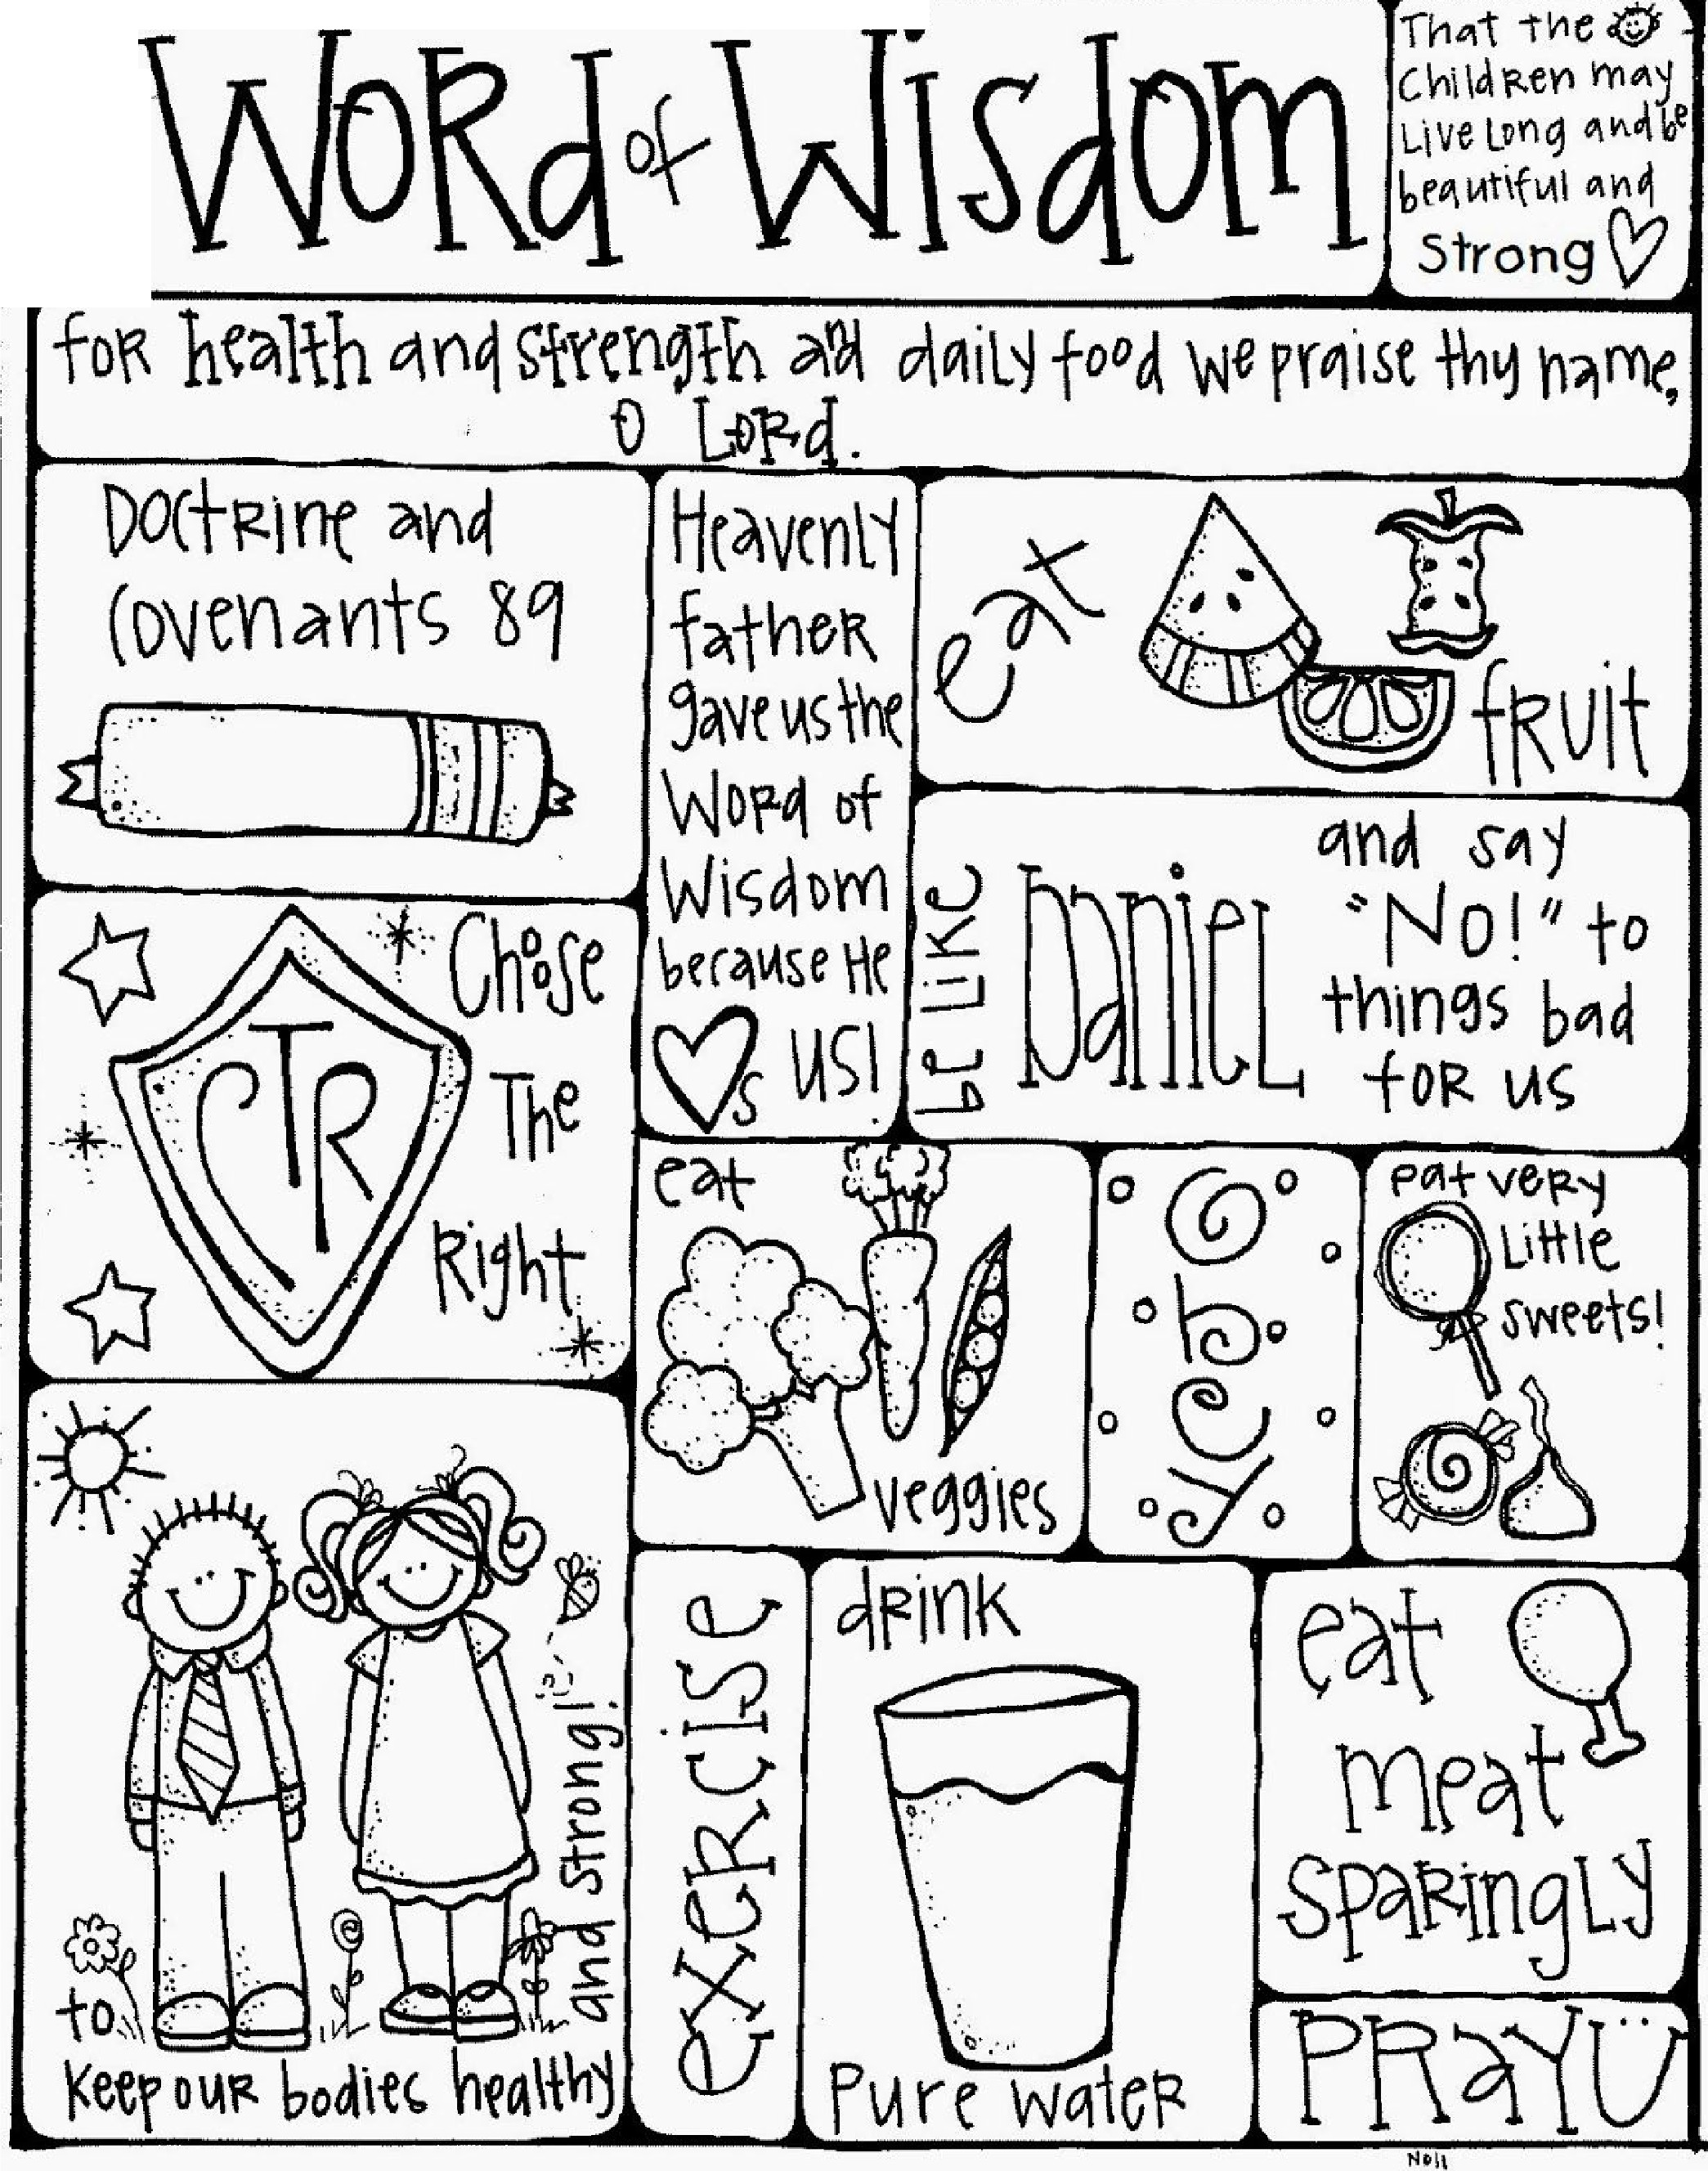 Word of Wisdom
That the
Children may
Live Long and be
beautiful and
Strong
for health and strength and daily food we praise thy name,
O Lord.
Doctrine and
Covenants 89
Heavenly
father
gave us the
Word of
Wisdom
because He
s us!
eat
fruit
be like
Daniel
and say
"No!" to
things bad
for us
Choose
The
Right
CTR
eat
veggies
obey
eat very
Little
sweets!
to
Keep our bodies healthy
and strong!
exercise
drink
Pure water
eat
meat
sparingly
PRAY
Noll